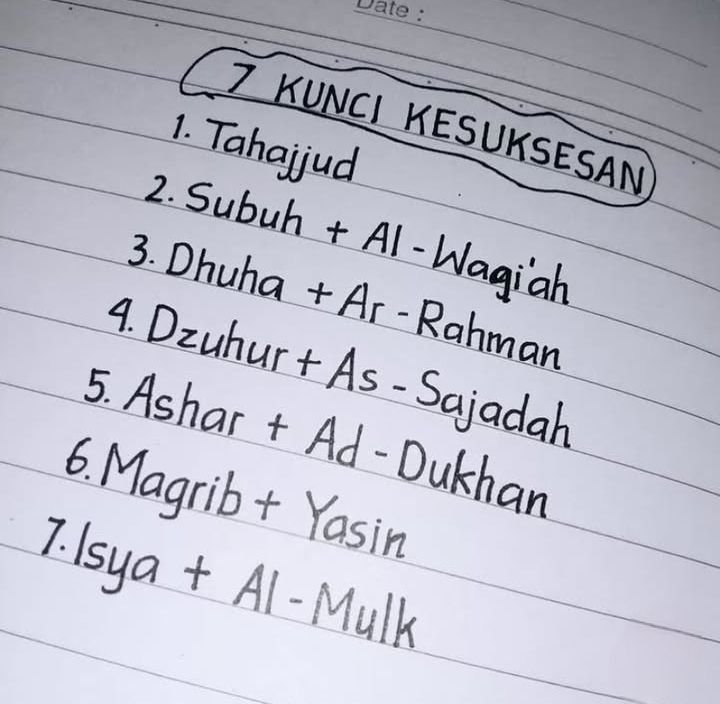 Date :
7 KUNCI KESUKSESAN
1. Tahajjud
2. Subuh + Al - Waqi'ah
3. Dhuha + Ar - Rahman
4. Dzuhur + As - Sajadah
5. Ashar + Ad - Dukhan
6. Magrib + Yasin
7. Isya + Al - Mulk